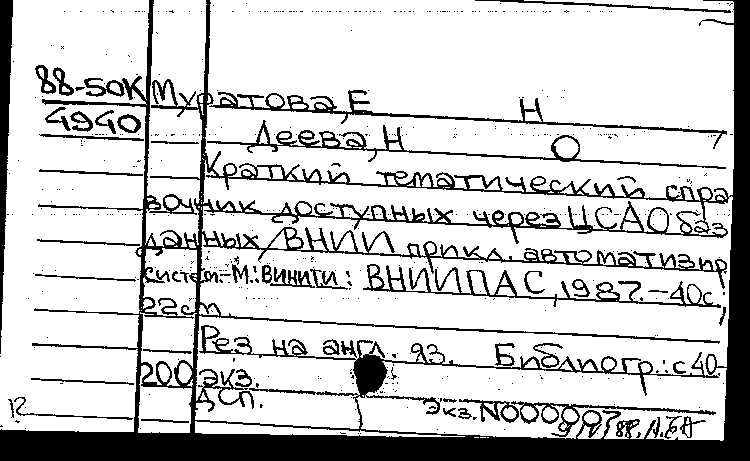 88-50К Муратова,Е Н
4940 Деева,Н О
Краткий тематический спра-
вочник доступных через ЦСАО баз
данных/ВНИИ прикл. автоматизир
систем.-М.:Винити: ВНИИПАС,1987.-40с;
22см.
Рез. на англ. яз. Библиогр.:с.40-
200 экз.
ДСП. Экз.N000007
12